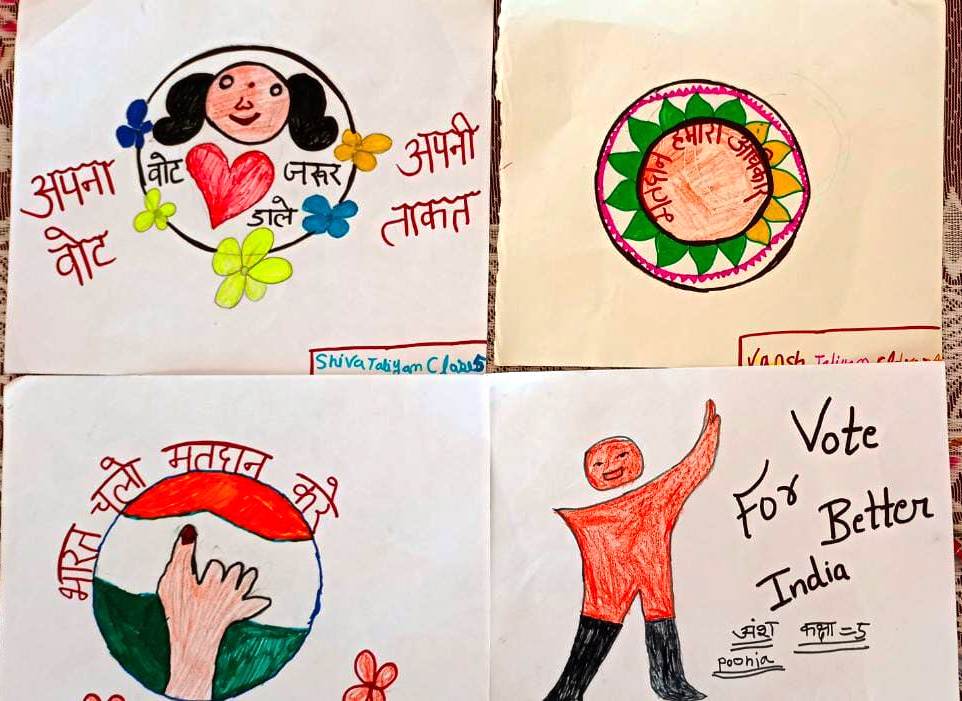 अपना
वोट
वोट
जरूर
डाले
अपनी
ताकत
Shiva Taliyan Class 5
मतदान हमारा अधिकार
Vansh Taliyan
भारत चलो मतदान करे
Vote
For
Better
India
अंश कक्षा = 5
poonia